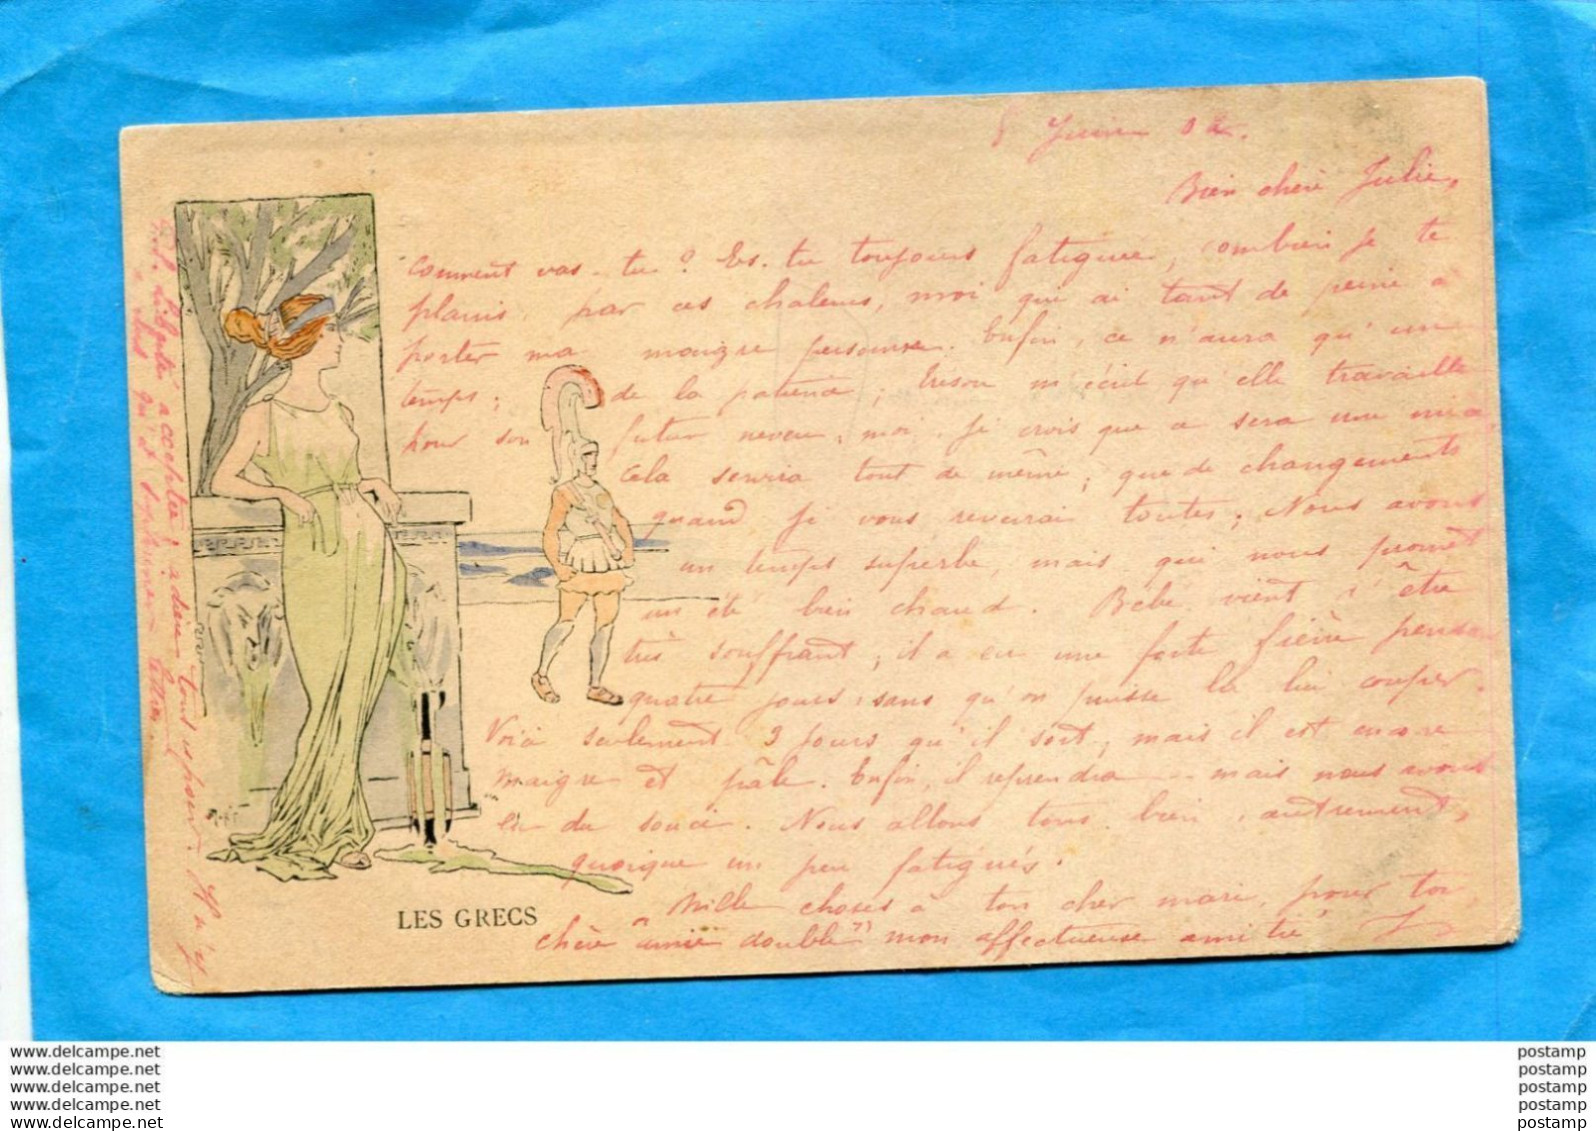 8 Juin 02.
Bien chère Julie,
comment vas-tu? Es-tu toujours fatiguée, combien je te
plains par ces chaleurs, moi qui ai tant de peine à
porter ma maigre personne. Enfin, ce n'aura qu'un
temps; de la patience; m'écrit qu'elle travaille
pour son futur neveu, moi, je crois que ce sera une
Cela servira tout de même; que de changements
quand je vous reverrai toutes; Nous avons
un temps superbe, mais qui nous promet
un été bien chaud. Bébé vient d'être
très souffrant, il a eu une forte fièvre pendant
quatre jours, sans qu'on puisse la lui couper.
Voilà seulement 3 jours qu'il sort, mais il est encore
maigre et pâle. Enfin, il reprendra - mais nous avons
eu du souci. Nous allons tous bien, autrement,
quoique un peu fatigués.
Mille choses à ton cher mari, pour toi
chère "amie double" mon affectueuse amitié
LES GRECS
www.delcampe.net
www.delcampe.net
www.delcampe.net
www.delcampe.net
www.delcampe.net
postamp
postamp
postamp
postamp
postamp